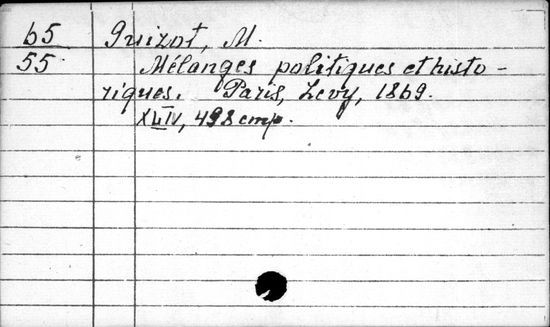 65 Guizot, M.
55 Mélanges politiques et histo-
riques. Paris, Levy, 1869.
XLIV, 498 стр.